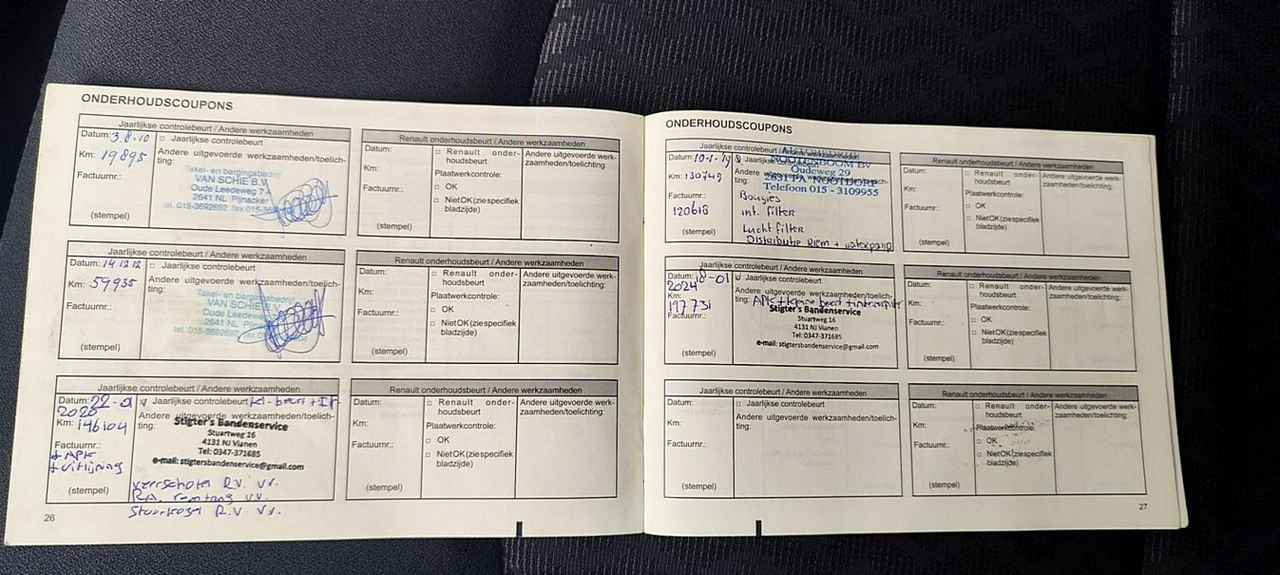 ONDERHOUDSCOUPONS
Jaarlijkse controlebeurt / Andere werkzaamheden
Datum: 3.8.10
□ Jaarlijkse controlebeurt
Km: 19895
Andere uitgevoerde werkzaamheden/toelich-
ting:
Factuurnr.:
Takel- en bergingsbedrijf
VAN SCHIE B.V.
Oude Leedeweg 7A
2641 NL Pijnacker
tel. 015-3692692 fax 015-36
(stempel)
Renault onderhoudsbeurt / Andere werkzaamheden
Datum:
□ Renault onder-
houdsbeurt
Andere uitgevoerde werk-
zaamheden/toelichting:
Km:
Plaatwerkcontrole:
Factuurnr.:
□ OK
□ Niet OK (zie specifiek
bladzijde)
(stempel)
Jaarlijkse controlebeurt / Andere werkzaamheden
Datum: 14.12.12
□ Jaarlijkse controlebeurt
Km: 59935
Andere uitgevoerde werkzaamheden/toelich-
ting:
Factuurnr.:
Takel- en bergingsbedrijf
VAN SCHIE B.V.
Oude Leedeweg
2641 NL Pijnacker
tel. 015-3692692 fax
(stempel)
Renault onderhoudsbeurt / Andere werkzaamheden
Datum:
□ Renault onder-
houdsbeurt
Andere uitgevoerde werk-
zaamheden/toelichting:
Km:
Plaatwerkcontrole:
Factuurnr.:
□ OK
□ Niet OK (zie specifiek
bladzijde)
(stempel)
Jaarlijkse controlebeurt / Andere werkzaamheden
Datum: 22-01
2020
Jaarlijkse controlebeurt kl-beurt +
Km: 146104
Andere uitgevoerde werkzaamheden/toelich-
ting:
Factuurnr.:
+ APK
+ uitlijning
Stigter's Bandenservice
Stuartweg 16
4131 NJ Vianen
Tel: 0347-371685
e-mail: stigtersbandenservice@gmail.com
(stempel)
veerschotel R.V. VV.
R.A. remtang VV.
Stuurkogel R.V. VV.
Renault onderhoudsbeurt / Andere werkzaamheden
Datum:
□ Renault onder-
houdsbeurt
Andere uitgevoerde werk-
zaamheden/toelichting:
Km:
Plaatwerkcontrole:
Factuurnr.:
□ OK
□ Niet OK (zie specifiek
bladzijde)
(stempel)
26
ONDERHOUDSCOUPONS
Jaarlijkse controlebeurt / Andere werkzaamheden
Datum: 10-1-19
Jaarlijkse
Km: 130749
Andere uitgevoerde werkzaamheden/toelich-
ting:
NOOTENBOOM BV
Oudeweg 29
2631 PA NOOTDORP
Telefoon 015 - 3109955
Factuurnr.:
120618
Bougies
int. filter
Lucht filter
Distributie Riem + waterpomp
(stempel)
Renault onderhoudsbeurt / Andere werkzaamheden
Datum:
□ Renault onder-
houdsbeurt
Andere uitgevoerde werk-
zaamheden/toelichting:
Km:
Plaatwerkcontrole:
Factuurnr.:
□ OK
□ Niet OK (zie specifiek
bladzijde)
(stempel)
Jaarlijkse controlebeurt / Andere werkzaamheden
Datum: 18-01
2024
Jaarlijkse controlebeurt
Km:
197731
Andere uitgevoerde werkzaamheden/toelich-
ting: APK + kleine beurt +
Factuurnr.:
Stigter's Bandenservice
Stuartweg 16
4131 NJ Vianen
Tel: 0347-371685
e-mail: stigtersbandenservice@gmail.com
(stempel)
Renault onderhoudsbeurt / Andere werkzaamheden
Datum:
□ Renault onder-
houdsbeurt
Andere uitgevoerde werk-
zaamheden/toelichting:
Km:
Plaatwerkcontrole:
Factuurnr.:
□ OK
□ Niet OK (zie specifiek
bladzijde)
(stempel)
Jaarlijkse controlebeurt / Andere werkzaamheden
Datum:
□ Jaarlijkse controlebeurt
Km:
Andere uitgevoerde werkzaamheden/toelich-
ting:
Factuurnr.:
(stempel)
Renault onderhoudsbeurt / Andere werkzaamheden
Datum:
□ Renault onder-
houdsbeurt
Andere uitgevoerde werk-
zaamheden/toelichting:
Km:
Plaatwerkcontrole:
Factuurnr.:
□ OK
□ Niet OK (zie specifiek
bladzijde)
(stempel)
27